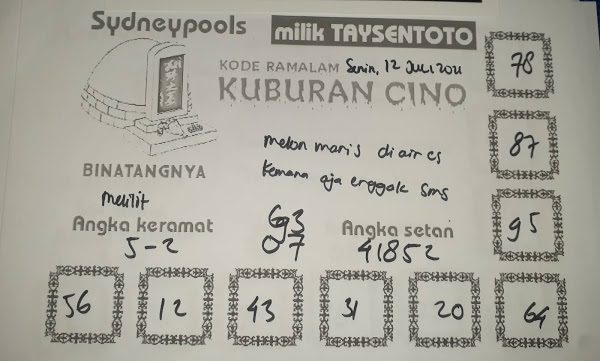 Sydneypools
milik TAYSENTOTO
78
KODE RAMALAM Senin, 12 Juli 2021
KUBURAN CINO
melon manis di air es
kemana aja enggak sms
87
BINATANGNYA
95
Angka keramat
5-2
693
07
Angka setan
41852
56 12 43 31 20 64